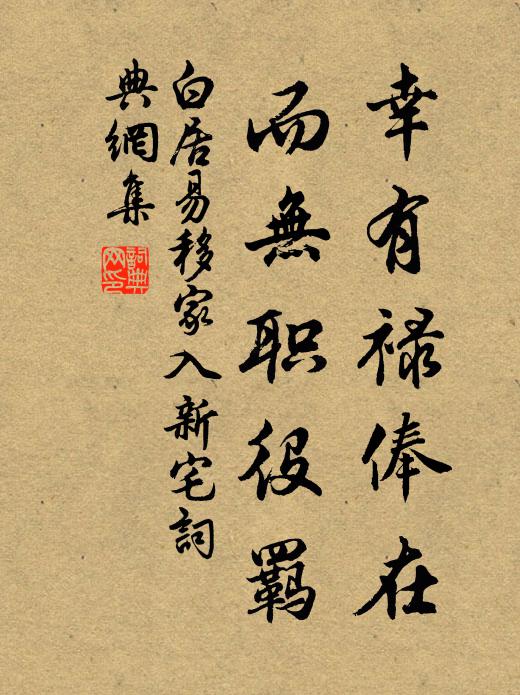 幸有禄俸在
而無职役羈
白居易移家入新宅詞
典網集
詞典網印